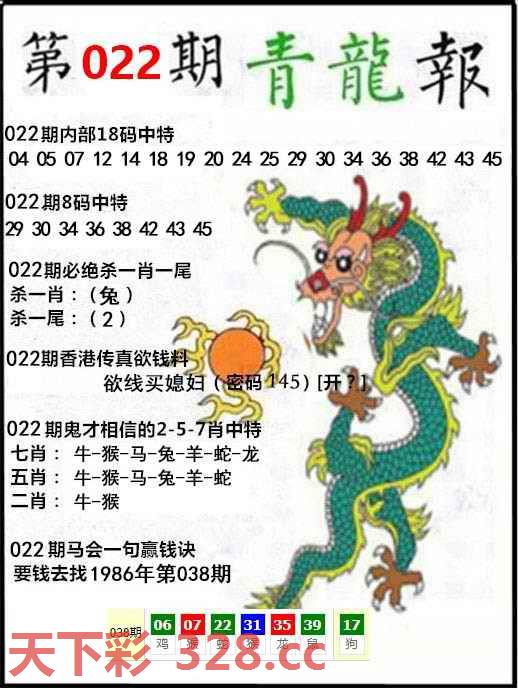 第022期青龍報
022期内部18码中特
04 05 07 12 14 18 19 20 24 25 29 30 34 36 38 42 43 45
022期8码中特
29 30 34 36 38 42 43 45
022期必绝杀一肖一尾
杀一肖：（兔）
杀一尾：（2）
022期香港传真欲钱料
欲线买媳妇（密码145）[开？]
022期鬼才相信的2-5-7肖中特
七肖： 牛-猴-马-兔-羊-蛇-龙
五肖： 牛-猴-马-兔-羊-蛇
二肖： 牛-猴
022期马会一句赢钱诀
要钱去找1986年第038期
038期 06 07 22 31 35 39 17
鸡 猴 蛇 猴 龙 鼠 狗
天下彩 328.cc